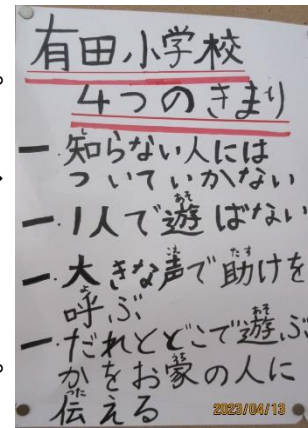 有田小学校
4つのきまり
ー 知らない人には
ついていかない
ー 1人で遊ばない
ー 大きな声で助けを
呼ぶ
ー だれとどこで遊ぶ
かをお家の人に
伝える
2023/04/13